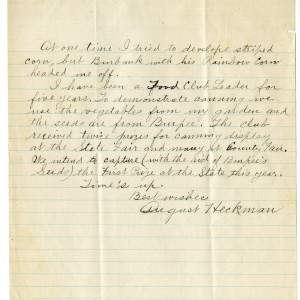 At one time I tried to develope striped
corn, but Burbank with his Rainbow Corn
headed me off.
I have been a Food Club Leader for
five years. To demonstrate canning we
use the vegetables from my garden and
the seeds are from Burpee's. The club
received twice prizes for canning display
at the State Fair and many at County Fair.
We intend to capture (with the aid of Burpee's
Seeds) the First Prize at the State this year.
Time's up.
Best wishes
August Heckman